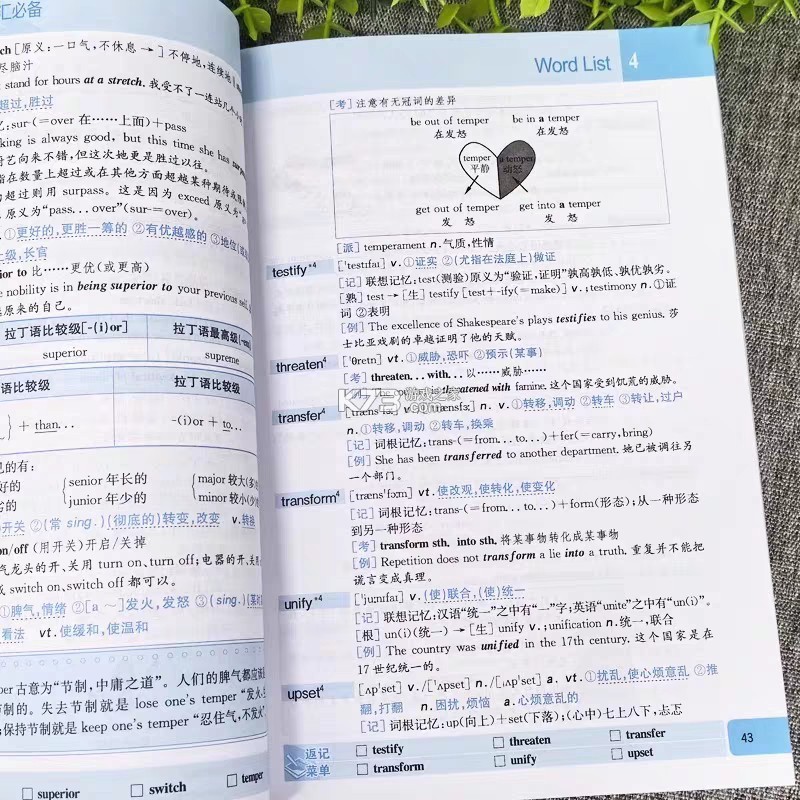 汇必备
ch [原义：一口气，不休息→] 不停地，连续地
尽脑汁
stand for hours at a stretch. 我受不了一连站几个小
超过，胜过
忆：sur-(=over 在……上面)＋pass
king is always good, but this time she has
艺向来不错，但这次她更是胜过以往。
指在数量上超过或在其他方面超越某种期待或
超过则用 surpass。这是因为 exceed 原义为
原义为“pass…over”(sur-=over)。
①更好的，更胜一筹的 ②有优越感的 ③地位
上级，长官
ior to 比……更优(或更高)
e nobility is in being superior to your previous self.
原来的自己。
拉丁语比较级[-(i)or] 拉丁语最高级
superior supreme
语比较级 拉丁语比较级
} + than... -(i)or + to...
见的有：
好的 senior 年长的 major 较大
劣的 junior 年少的 minor 较小
开关 ②(常 sing.)(彻底的)转变，改变 v.转换
on/off (用开关)开启/关掉
气龙头的开、关用 turn on、turn off；电器的开、关
或 switch on、switch off 都可以。
①脾气，情绪 ②[a ～]发火，发怒 ③(sing.)
看法 vt.使缓和，使温和
per 古意为“节制，中庸之道”。人们的脾气都应该
节制的。失去节制就是 lose one's temper “发火
保持节制就是 keep one's temper “忍住气，不发火”
superior switch temper
Word List 4
[考] 注意有无冠词的差异
be out of temper be in a temper
在发怒 在发怒
temper a temper
平静 动怒
get out of temper get into a temper
发 怒 发 怒
[派] temperament n.气质，性情
testify*4 ['testɪfaɪ] v.①证实 ②(尤指在法庭上)做证
[记] 联想记忆：test(测验)原义为“验证，证明”孰高孰低、孰优孰劣。
[熟] test → [生] testify [test+-ify(=make)] v.；testimony n.①证
词 ②表明
[例] The excellence of Shakespeare's plays testifies to his genius. 莎
士比亚戏剧的卓越证明了他的天赋。
threaten4 ['θretn] vt.①威胁，恐吓 ②预示(某事)
[考] threaten...with...以……威胁……
threatened with famine. 这个国家受到饥荒的威胁。
K73 游戏之家
.com
transfer4 n. v.①转移，调动 ②转车 ③转让，过户
n.①转移，调动 ②转车，换乘
[记] 词根记忆：trans-(=from...to...)+fer(=carry,bring)
[例] She has been transferred to another department. 她已被调往另
一个部门。
transform4 [træns'fɔːm] vt.使改观，使转化，使变化
[记] 词根记忆：trans-(=from...to...)＋form(形态)；从一种形态
到另一种形态
[考] transform sth. into sth. 将某事物转化成某事物
[例] Repetition does not transform a lie into a truth. 重复并不能把
谎言变成真理。
unify*4 ['juːnɪfaɪ] v.(使)联合，(使)统一
[记] 联想记忆：汉语“统一”之中有“一”字；英语“unite”之中有“un(i)”。
[根] un(i)(统一) → [生] unify v.；unification n.统一，联合
[例] The country was unified in the 17th century. 这个国家是在
17世纪统一的。
upset4 [ʌp'set] v./['ʌpset] n./[ʌp'set] a. vt.①扰乱，使心烦意乱 ②推
翻，打翻 n.困扰，烦恼 a.心烦意乱的
[记] 词根记忆：up(向上)＋set(下落)；(心中)七上八下，忐忑
返记菜单 testify threaten transfer
transform unify upset
43